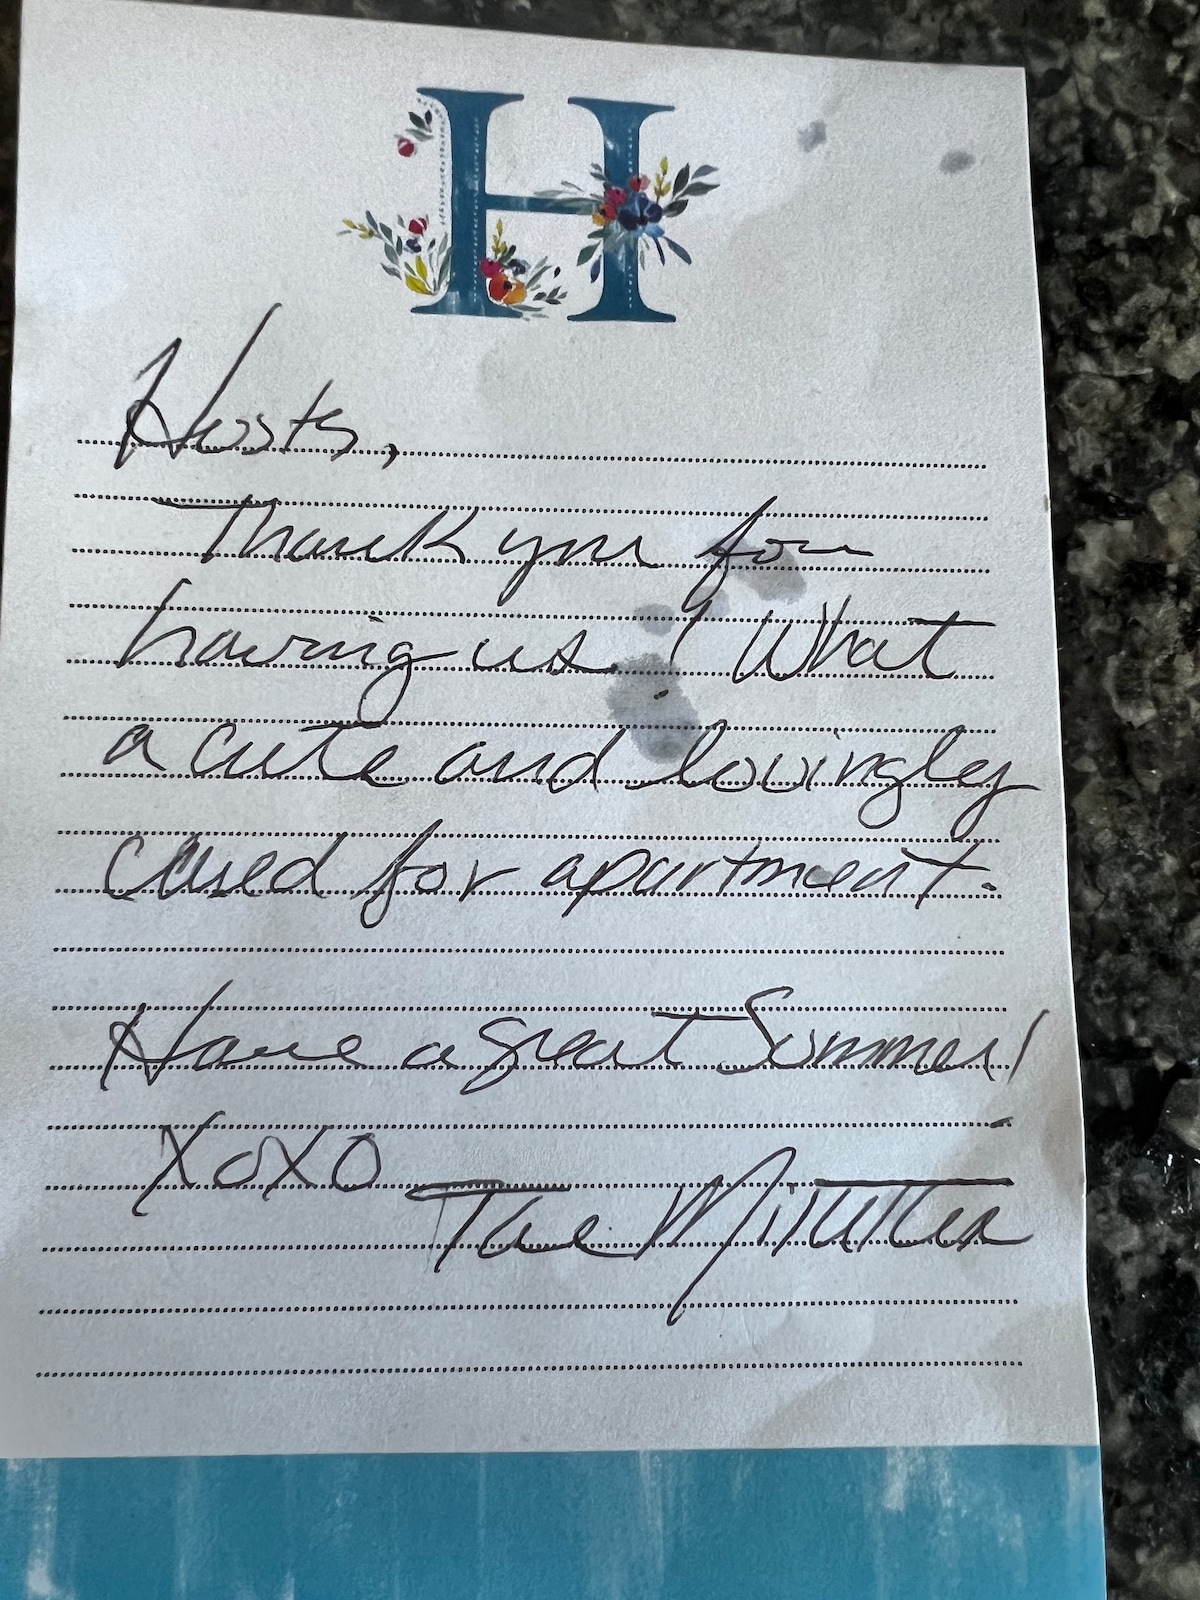 H
Hosts,
Thank you for
having us! What
a cute and lovingly
cared for apartment.
Have a great Summer!
XOXO The